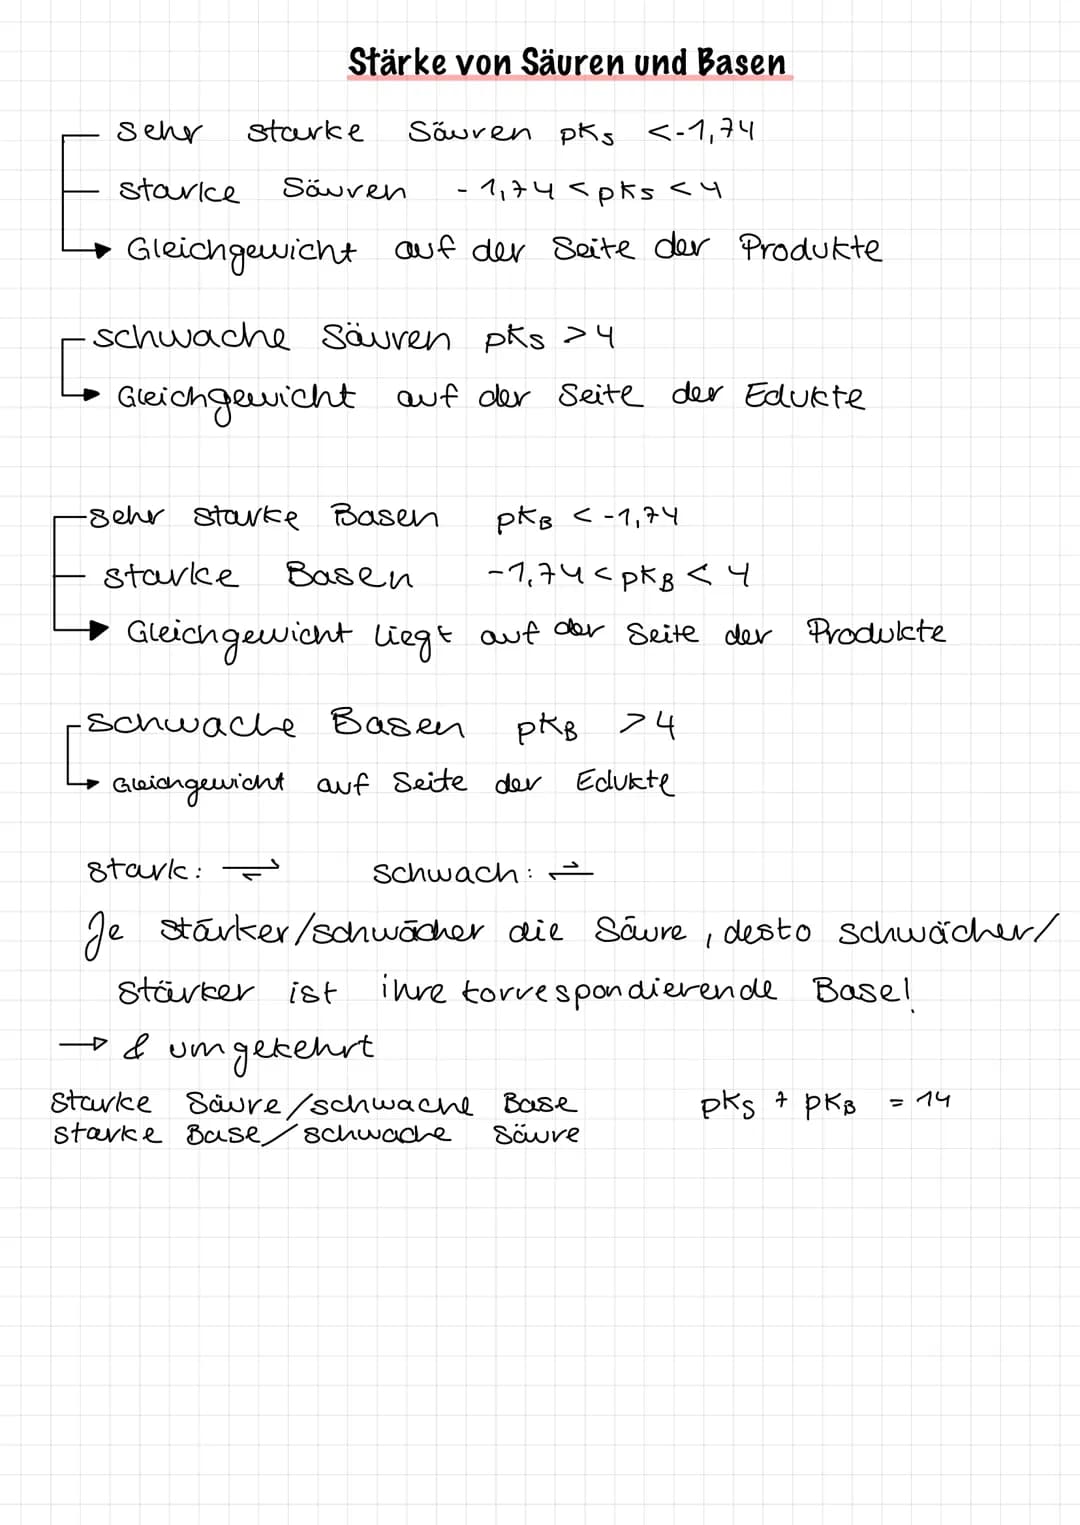 Stärke von Säuren und Basen
sehr starke Säuren pKs <-1,74
starke Säuren -1,74 < pKs < 4
Gleichgewicht auf der Seite der Produkte
schwache Säuren pKs >4
Gleichgewicht auf der Seite der Edukte
sehr starke Basen pKB < -1,74
starke Basen -1,74 < pKB < 4
Gleichgewicht liegt auf der Seite der Produkte
schwache Basen pKB >4
Gleichgewicht auf Seite der Edukte
stark: ⇌ schwach: ⇌
Je stärker/schwächer die Säure, desto schwächer/
stärker ist ihre korrespondierende Base!
→ & umgekehrt
starke Säure/schwache Base pKs + pKB = 14
starke Base/schwache Säure